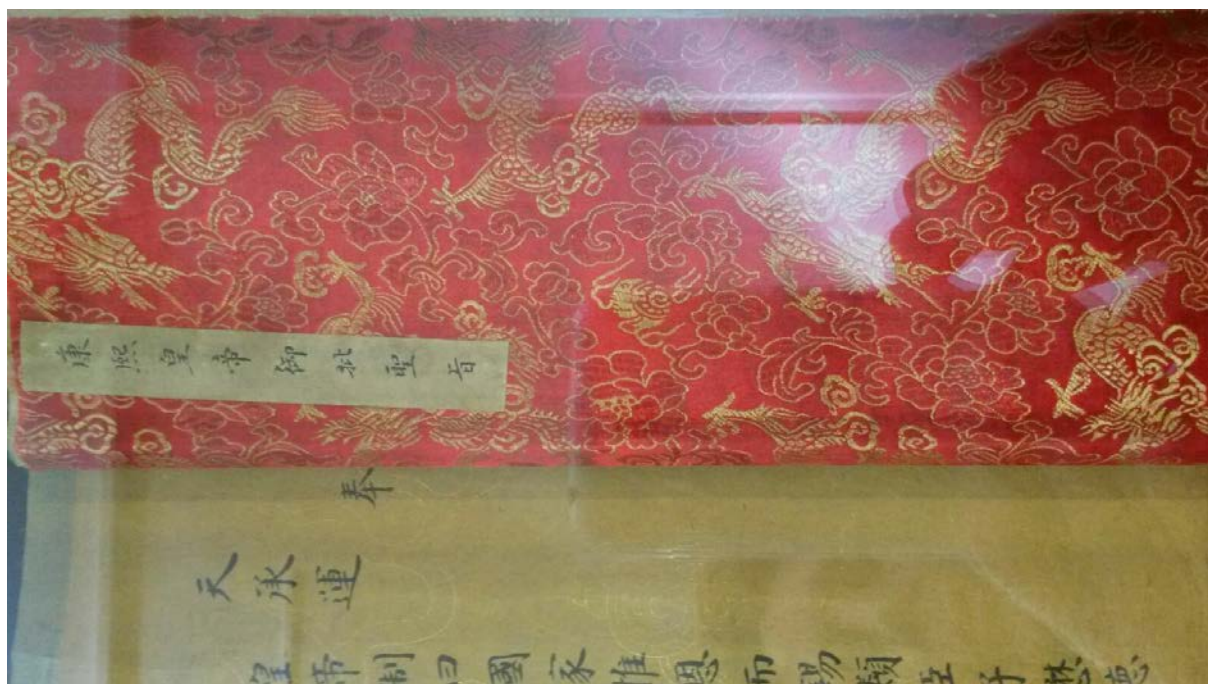 康熙皇帝御批聖旨
奉
天承運
皇帝制曰國家推恩而錫類臣子懋德